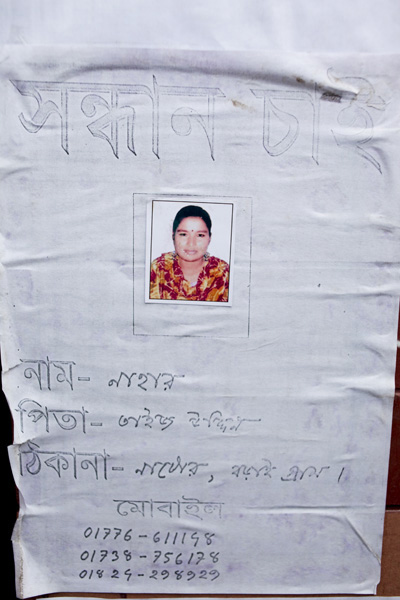 সন্ধান চাই
নাম- নাহার
পিতা- তাইজ উদ্দিন
ঠিকানা- নাটোর, গ্রাম ।
মোবাইল
01776-611148
01738-756178
01824-298929